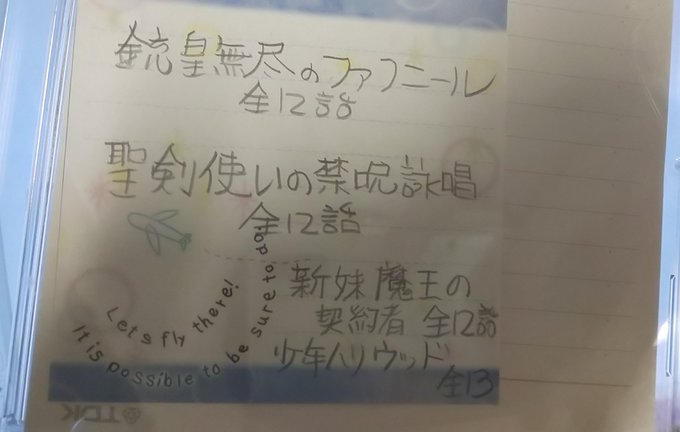 銃皇無尽のファフニール
全12話
聖剣使いの禁呪詠唱
全12話
新妹魔王の
契約者 全12話
少年ハリウッド
全13
Let's fly there!
It is possible to be sure to do.
TDK